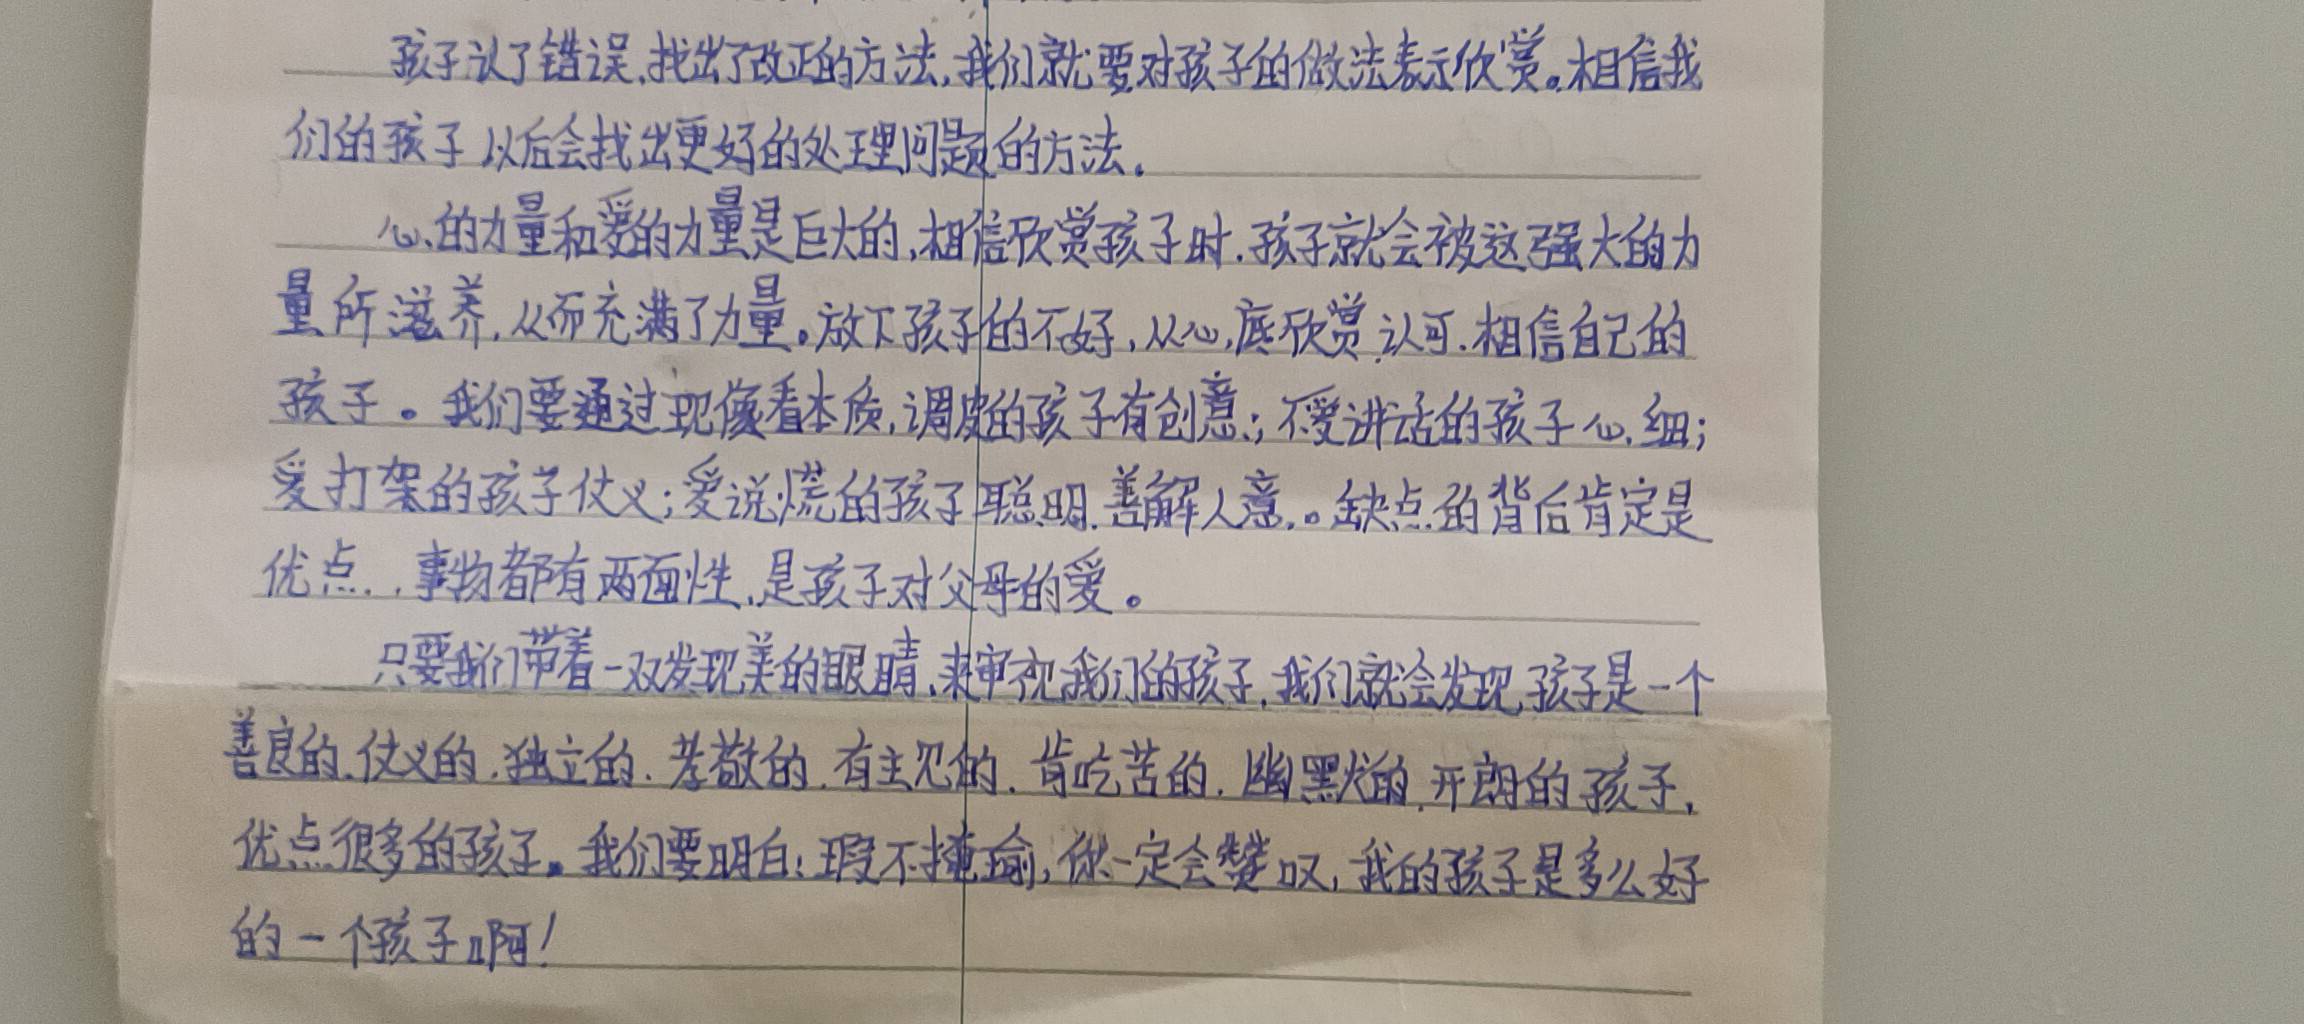 孩子认了错误,找出了改正的方法,我们就要对孩子的做法表示欣赏。相信我
们的孩子以后会找出更好的处理问题的方法。
心的力量和爱的力量是巨大的,相信欣赏孩子时,孩子就会被这强大的力
量所滋养,从而充满了力量。放下孩子的不好,从心底欣赏、认可、相信自己的
孩子。我们要通过现像看本质,调皮的孩子有创意;不爱讲话的孩子心细;
爱打架的孩子仗义;爱说慌的孩子聪明、善解人意。缺点的背后肯定是
优点,事物都有两面性,是孩子对父母的爱。
只要我们带着一双发现美的眼睛,来审视我们的孩子,我们就会发现,孩子是一个
善良的、仗义的、独立的、孝敬的、有主见的、肯吃苦的、幽默的、开朗的孩子,
优点很多的孩子。我们要明白:瑕不掩瑜,你一定会赞叹,我的孩子是多么好
的一个孩子啊!